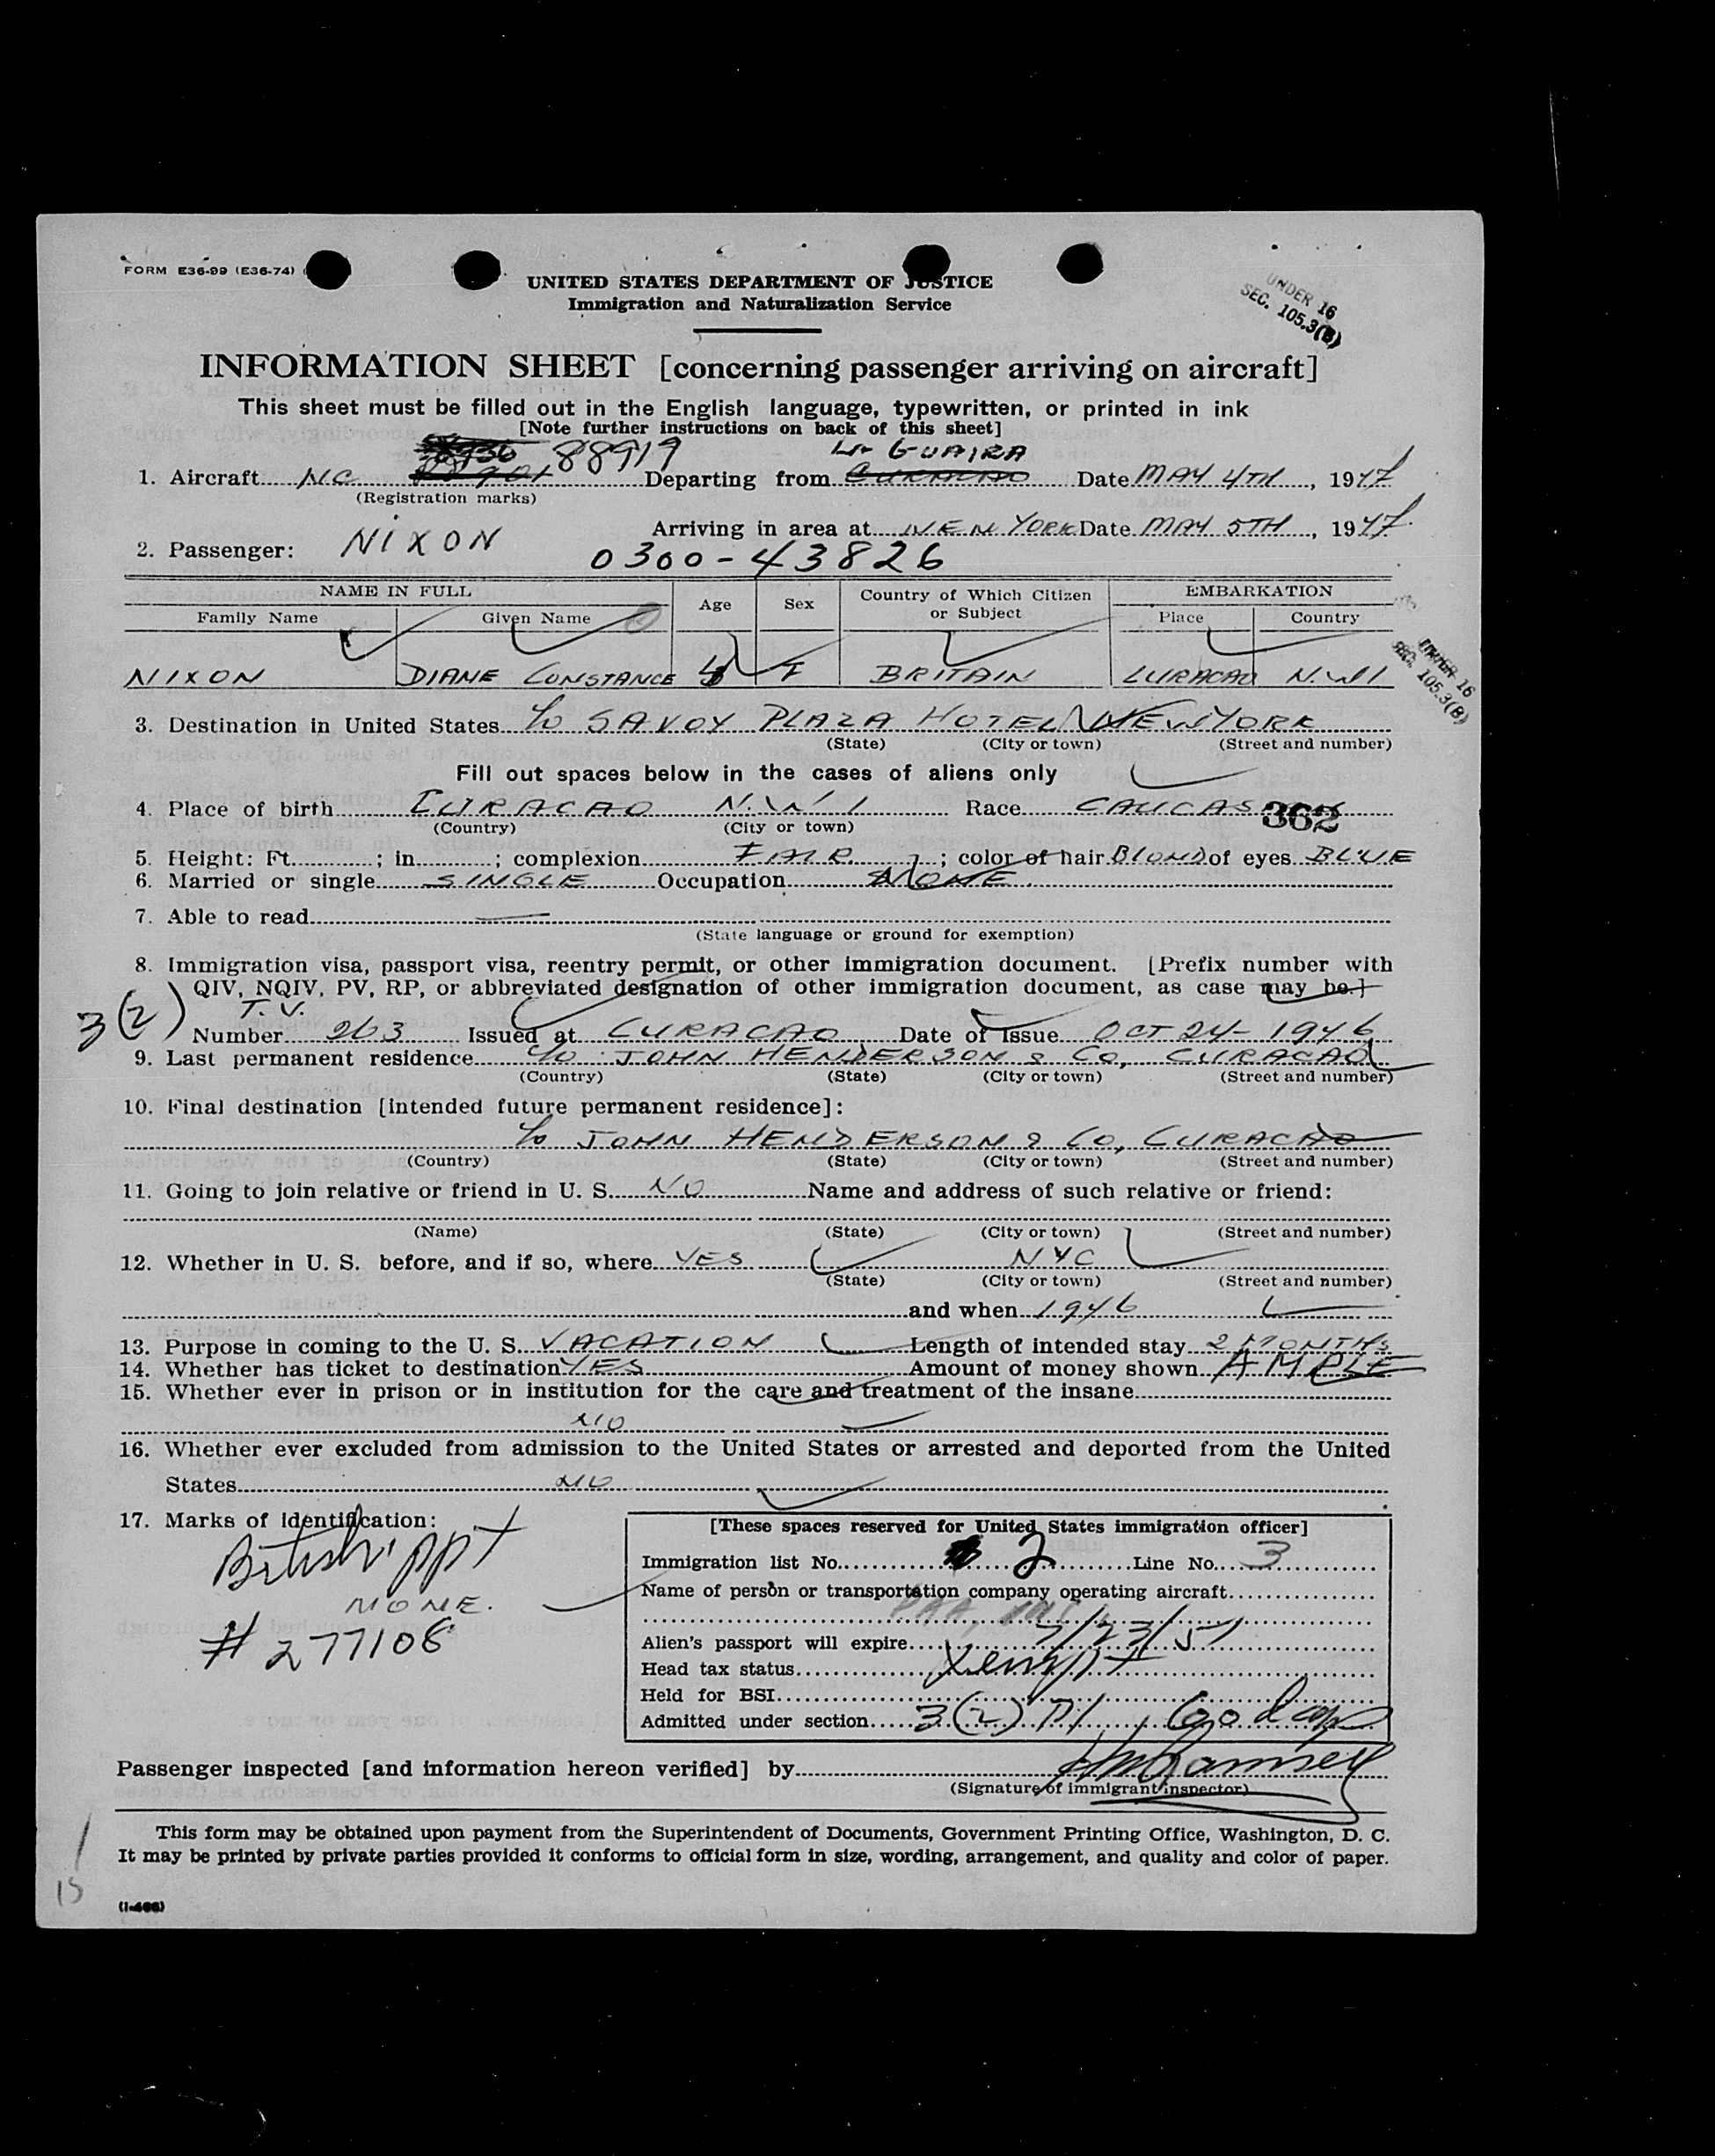 FORM E36-99 (E36-74)
UNITED STATES DEPARTMENT OF JUSTICE
Immigration and Naturalization Service
UNDER 16
SEC. 105.3(B)
INFORMATION SHEET [concerning passenger arriving on aircraft]
This sheet must be filled out in the English language, typewritten, or printed in ink
[Note further instructions on back of this sheet]
1. Aircraft NC 88919 Departing from LA GUAIRA Date MAY 4TH, 1947
(Registration marks)
Arriving in area at NEW YORK Date MAY 5TH, 1947
2. Passenger: NIXON
0300-43826
NAME IN FULL Age Sex Country of Which Citizen or Subject EMBARKATION
Family Name Given Name Place Country
NIXON DIANE CONSTANCE F BRITAIN CURACAO N.W.I
UNDER 16
SEC. 105.3(B)
3. Destination in United States c/o SAVOY PLAZA HOTEL NEW YORK
(State) (City or town) (Street and number)
Fill out spaces below in the cases of aliens only
4. Place of birth CURACAO N.W.I Race CAUCAS
362
(Country) (City or town)
5. Height: Ft. ; in. ; complexion FAIR ; color of hair BLOND of eyes BLUE
6. Married or single SINGLE Occupation NONE.
7. Able to read —
(State language or ground for exemption)
8. Immigration visa, passport visa, reentry permit, or other immigration document. [Prefix number with
QIV, NQIV, PV, RP, or abbreviated designation of other immigration document, as case may be.]
3(2) T.V.
Number 263 Issued at CURACAO Date of Issue OCT 24-1946
9. Last permanent residence c/o JOHN HENDERSON & CO, CURACAO
(Country) (State) (City or town) (Street and number)
10. Final destination [intended future permanent residence]:
c/o JOHN HENDERSON & CO, CURACAO
(Country) (State) (City or town) (Street and number)
11. Going to join relative or friend in U. S. NO Name and address of such relative or friend:
(Name) (State) (City or town) (Street and number)
12. Whether in U. S. before, and if so, where YES NYC
(State) (City or town) (Street and number)
and when 1946
13. Purpose in coming to the U. S. VACATION Length of intended stay 2 MONTHS
14. Whether has ticket to destination YES Amount of money shown AMPLE
15. Whether ever in prison or in institution for the care and treatment of the insane
NO
16. Whether ever excluded from admission to the United States or arrested and deported from the United
States NO
17. Marks of identification:
British ppt
NONE.
# 277108
[These spaces reserved for United States immigration officer]
Immigration list No. 2 Line No. 3
Name of person or transportation company operating aircraft
PAA, INC
Alien's passport will expire 7/23/51
Head tax status Xempt
Held for BSI
Admitted under section 3(2) P1, 60 d
Passenger inspected [and information hereon verified] by HM Ramsey
(Signature of immigrant inspector)
This form may be obtained upon payment from the Superintendent of Documents, Government Printing Office, Washington, D. C.
It may be printed by private parties provided it conforms to official form in size, wording, arrangement, and quality and color of paper.
15
(I-466)